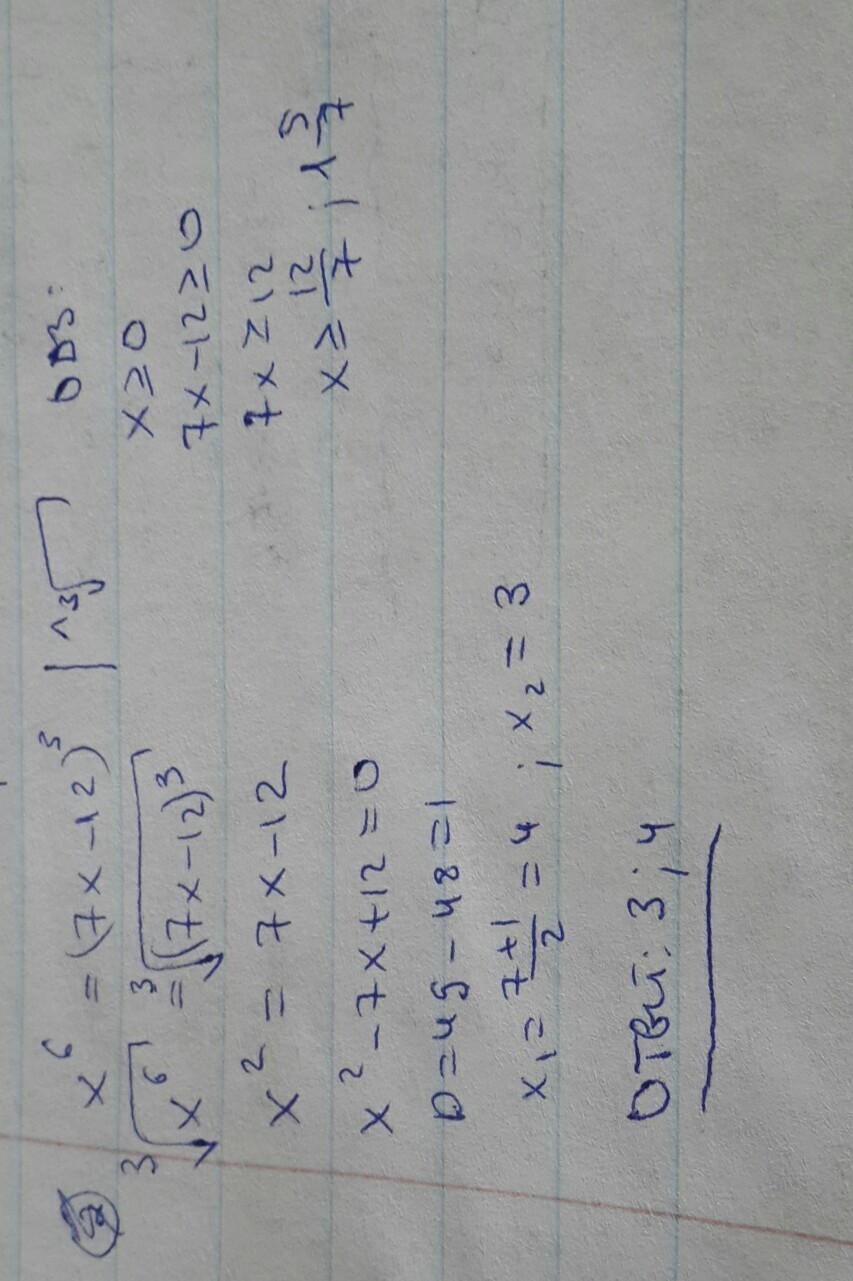 x⁶ = (7x-12)³ | ^ ³√
³√x⁶ = ³√(7x-12)³
x² = 7x-12
x²-7x+12=0
D=49-48=1
x₁= (7+1)/2 = 4 ; x₂ = 3
Ответ: 3; 4
ОДЗ:
x≥0
7x-12≥0
7x≥12
x≥ 12/7 ; 1 5/7